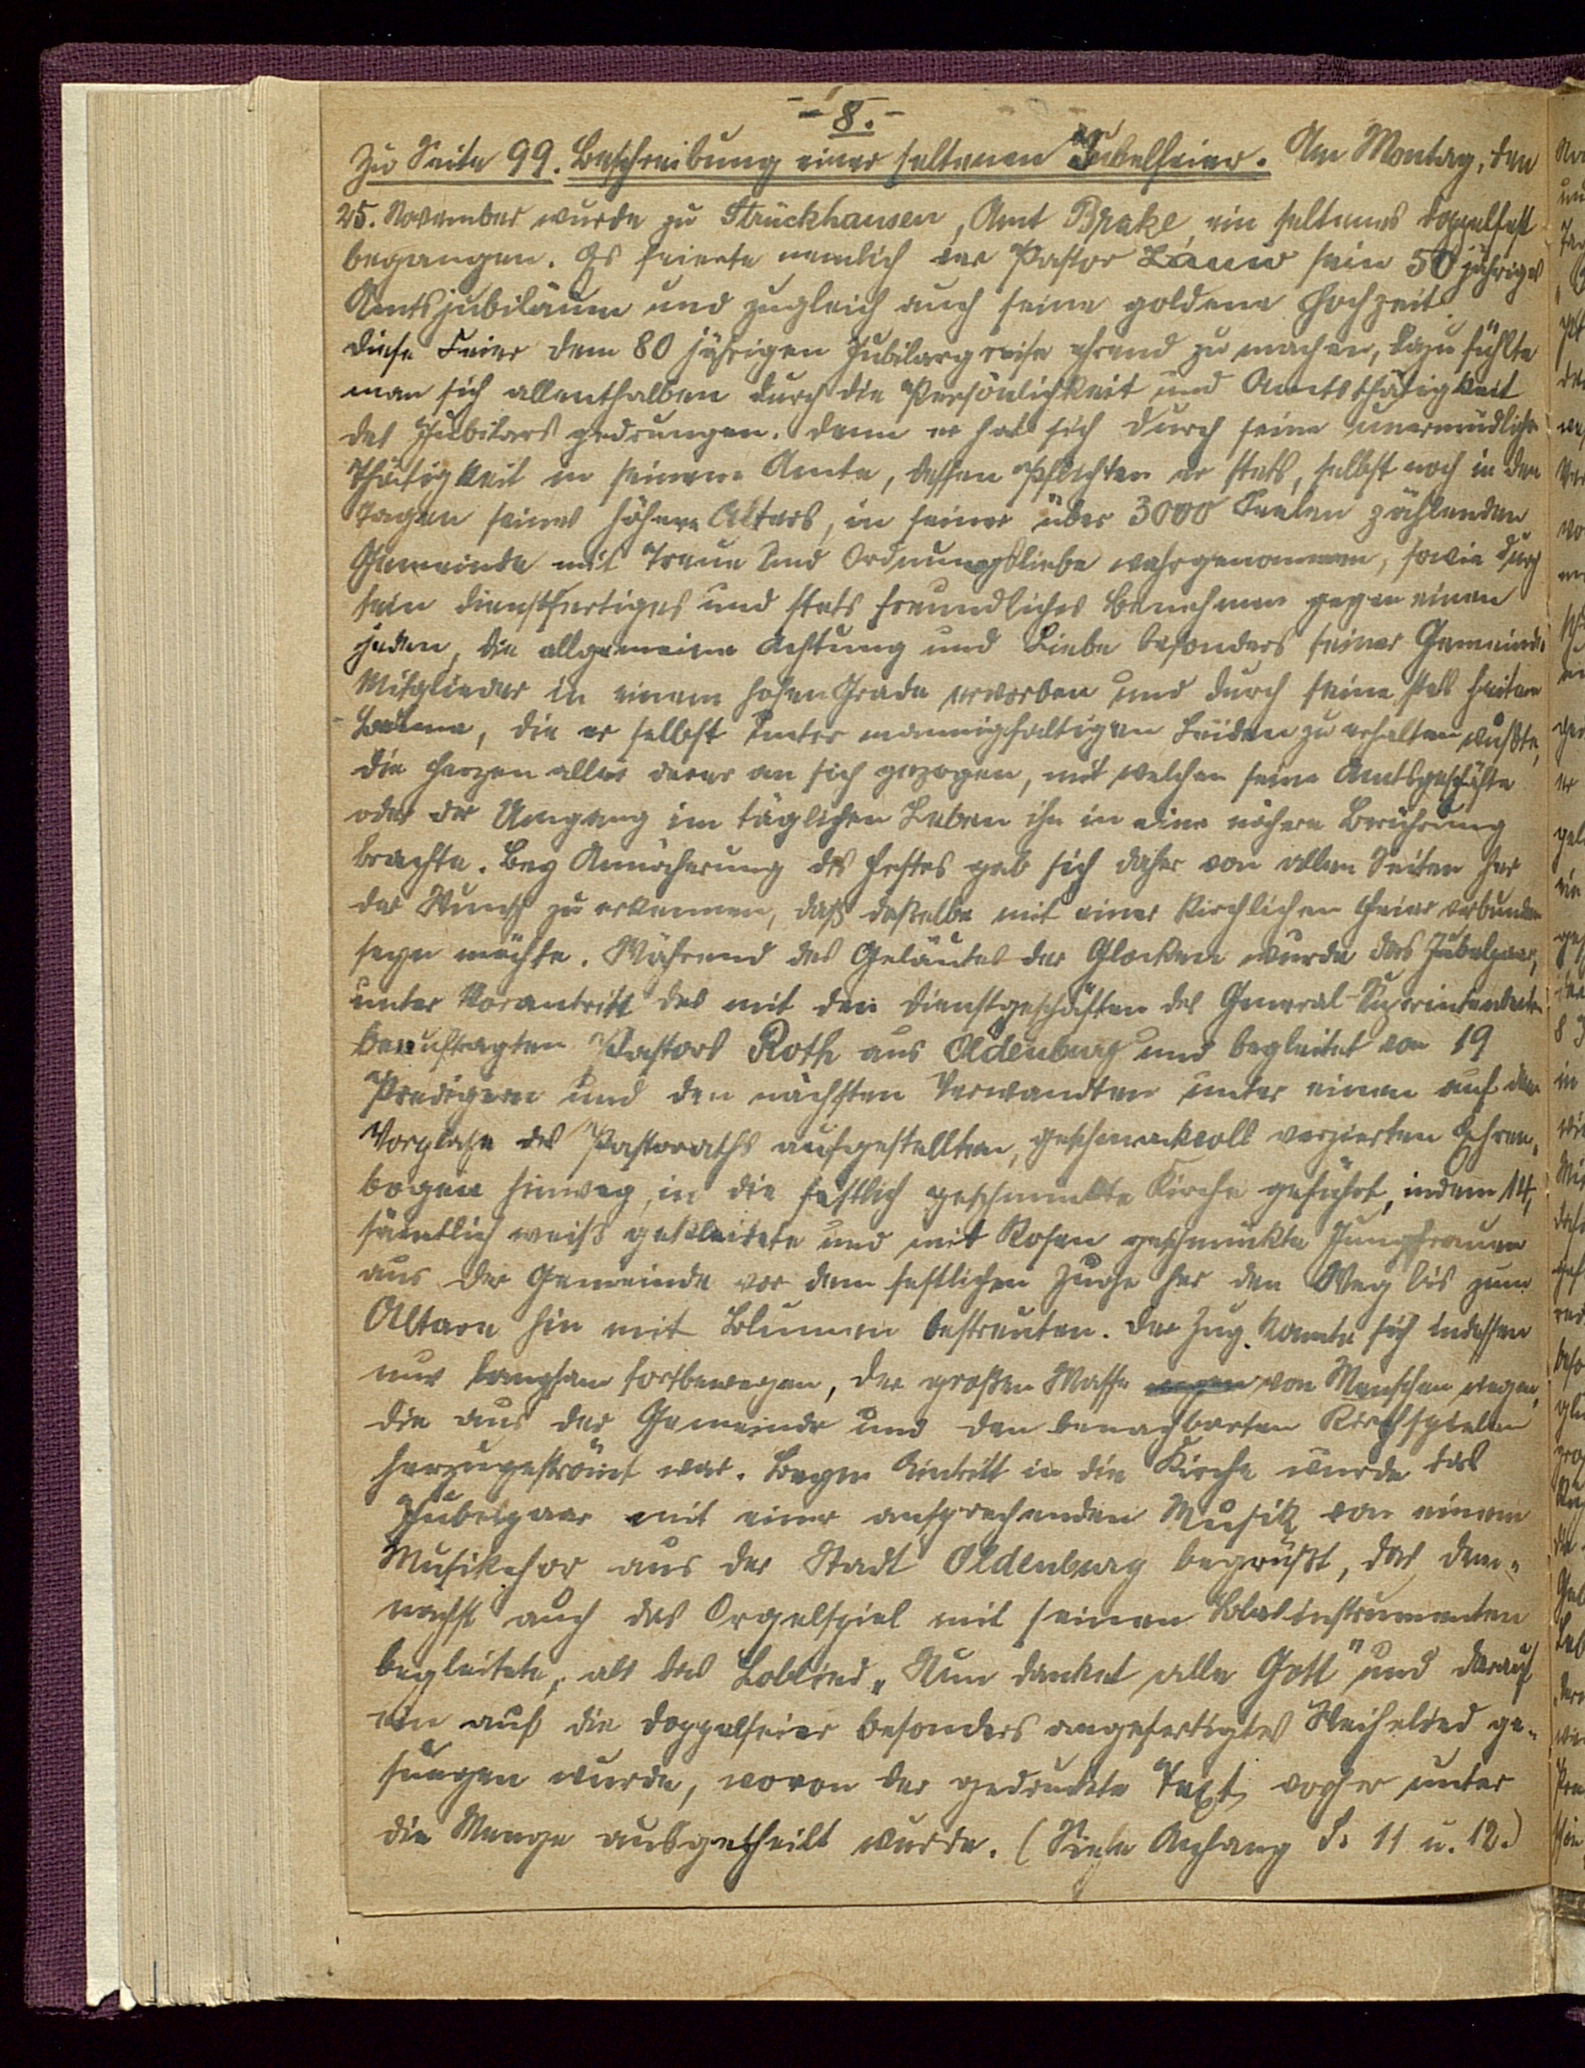 - 8. -
Zu Seite 99. Beschreibung einer seltenen Jubelfeier. Am Montag, den
25. November wurde zu Strückhausen, Amt Brake, ein seltenes Doppelfest
begangen. Es feierte nemlich der Pastor Lauw sein 50 jähriges
Amtsjubiläum und zugleich auch seine goldene Hochzeit.
Diese Feier dem 80 jährigen Jubilargreise ehrend zu machen, dazu fühlte
man sich allenthalben durch die Persönlichkeit und Amtsthätigkeit
des Jubilars gedrungen. Denn er hat sich durch seine unermüdliche
Thätigkeit in seinem Amte, dessen Pflichten er stets, selbst noch in den
Tagen seines höhern Alters, in seiner über 3000 Seelen zählenden
Gemeinde mit Treue und Ordnungsliebe wahrgenommen, sowie durch
sein dienstfertiges und stets freundliches Benehmen gegen einen
jeden, die allgemeine Achtung und Liebe besonders seiner Gemeinde-
Mitglieder in einem hohen Grade erworben und durch seine stets heitere
Laune, die er selbst unter mannigfaltigen Leiden zu erhalten wußte,
die Herzen aller derer an sich gezogen, mit welchen seine Amtsgeschäfte
oder der Umgang im täglichen Leben ihn in eine nähere Berührung
brachte. Bey Annäherung des Festes gab sich daher von allen Seiten her
der Wunsch zu erkennen, daß daßelbe mit einer kirchlichen Feier verbunden
seyn möchte. Während des Geläutes der Glocken wurde das Jubelpaar,
unter Vorantritt des mit den Dienstgeschäften des General-Superintendenten
beauftragten Pastors Roth aus Oldenburg und begleitet von 19
Predigern und den nächsten Verwandten unter einen auf dem
Vorplatze des Pastoraths aufgestellten, geschmackvoll verzierten Ehren-
bogen hinweg, in die festlich geschmückte Kirche geführt, indem 14,
sämtlich weiß gekleidete und mit Rosen geschmückte Jungfrauen
aus der Gemeinde vor dem festlichen Zuge her den Weg bis zum
Altare hin mit Blumen bestreuten. Der Zug konnte sich indessen
nur langsam fortbewegen, der großen Masse von Menschen wegen,
die aus der Gemeinde und den benachbarten Kirchspielen
herzugeströmt war. Beym Eintritt in die Kirche wurde das
Jubelpaar mit einer ansprechenden Musik von einem
Musikchor aus der Stadt Oldenburg begrüßt, das dem-
nächst auch das Orgelspiel mit seinen Blasinstrumenten
begleitete, als das Loblied „Nun danket alle Gott" und darauf
ein auf die Doppelfeier besonders angefertigtes Weihelied ge-
sungen wurde, wovon der gedruckte Text vorher unter
die Menge ausgetheilt wurde. (Siehe Anhang S. 11 u. 12.)